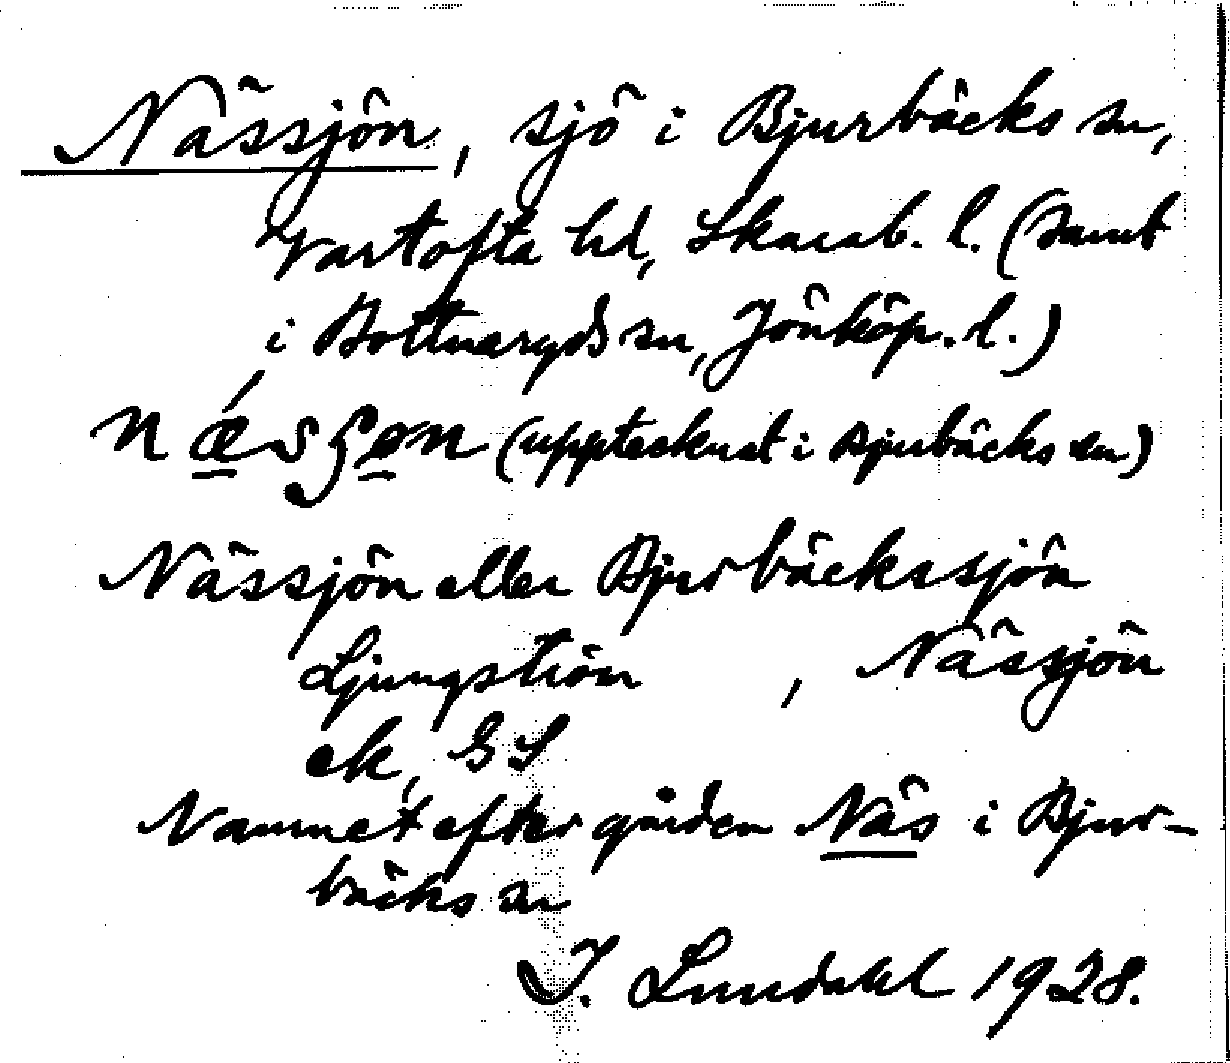 Nässjön, sjö i Bjurbäcks sn,
Vartofta hd, Skarab. l. (samt
i Bottnaryds sn, Jönköp. l.)
(upptecknat i Bjurbäcks sn)
Nässjön eller Bjurbäckssjön
Ljungström , Nässjön
ek, GS
Namnet efter gården Näs i Bjur-
bäcks sn
I. Lundahl 1928.